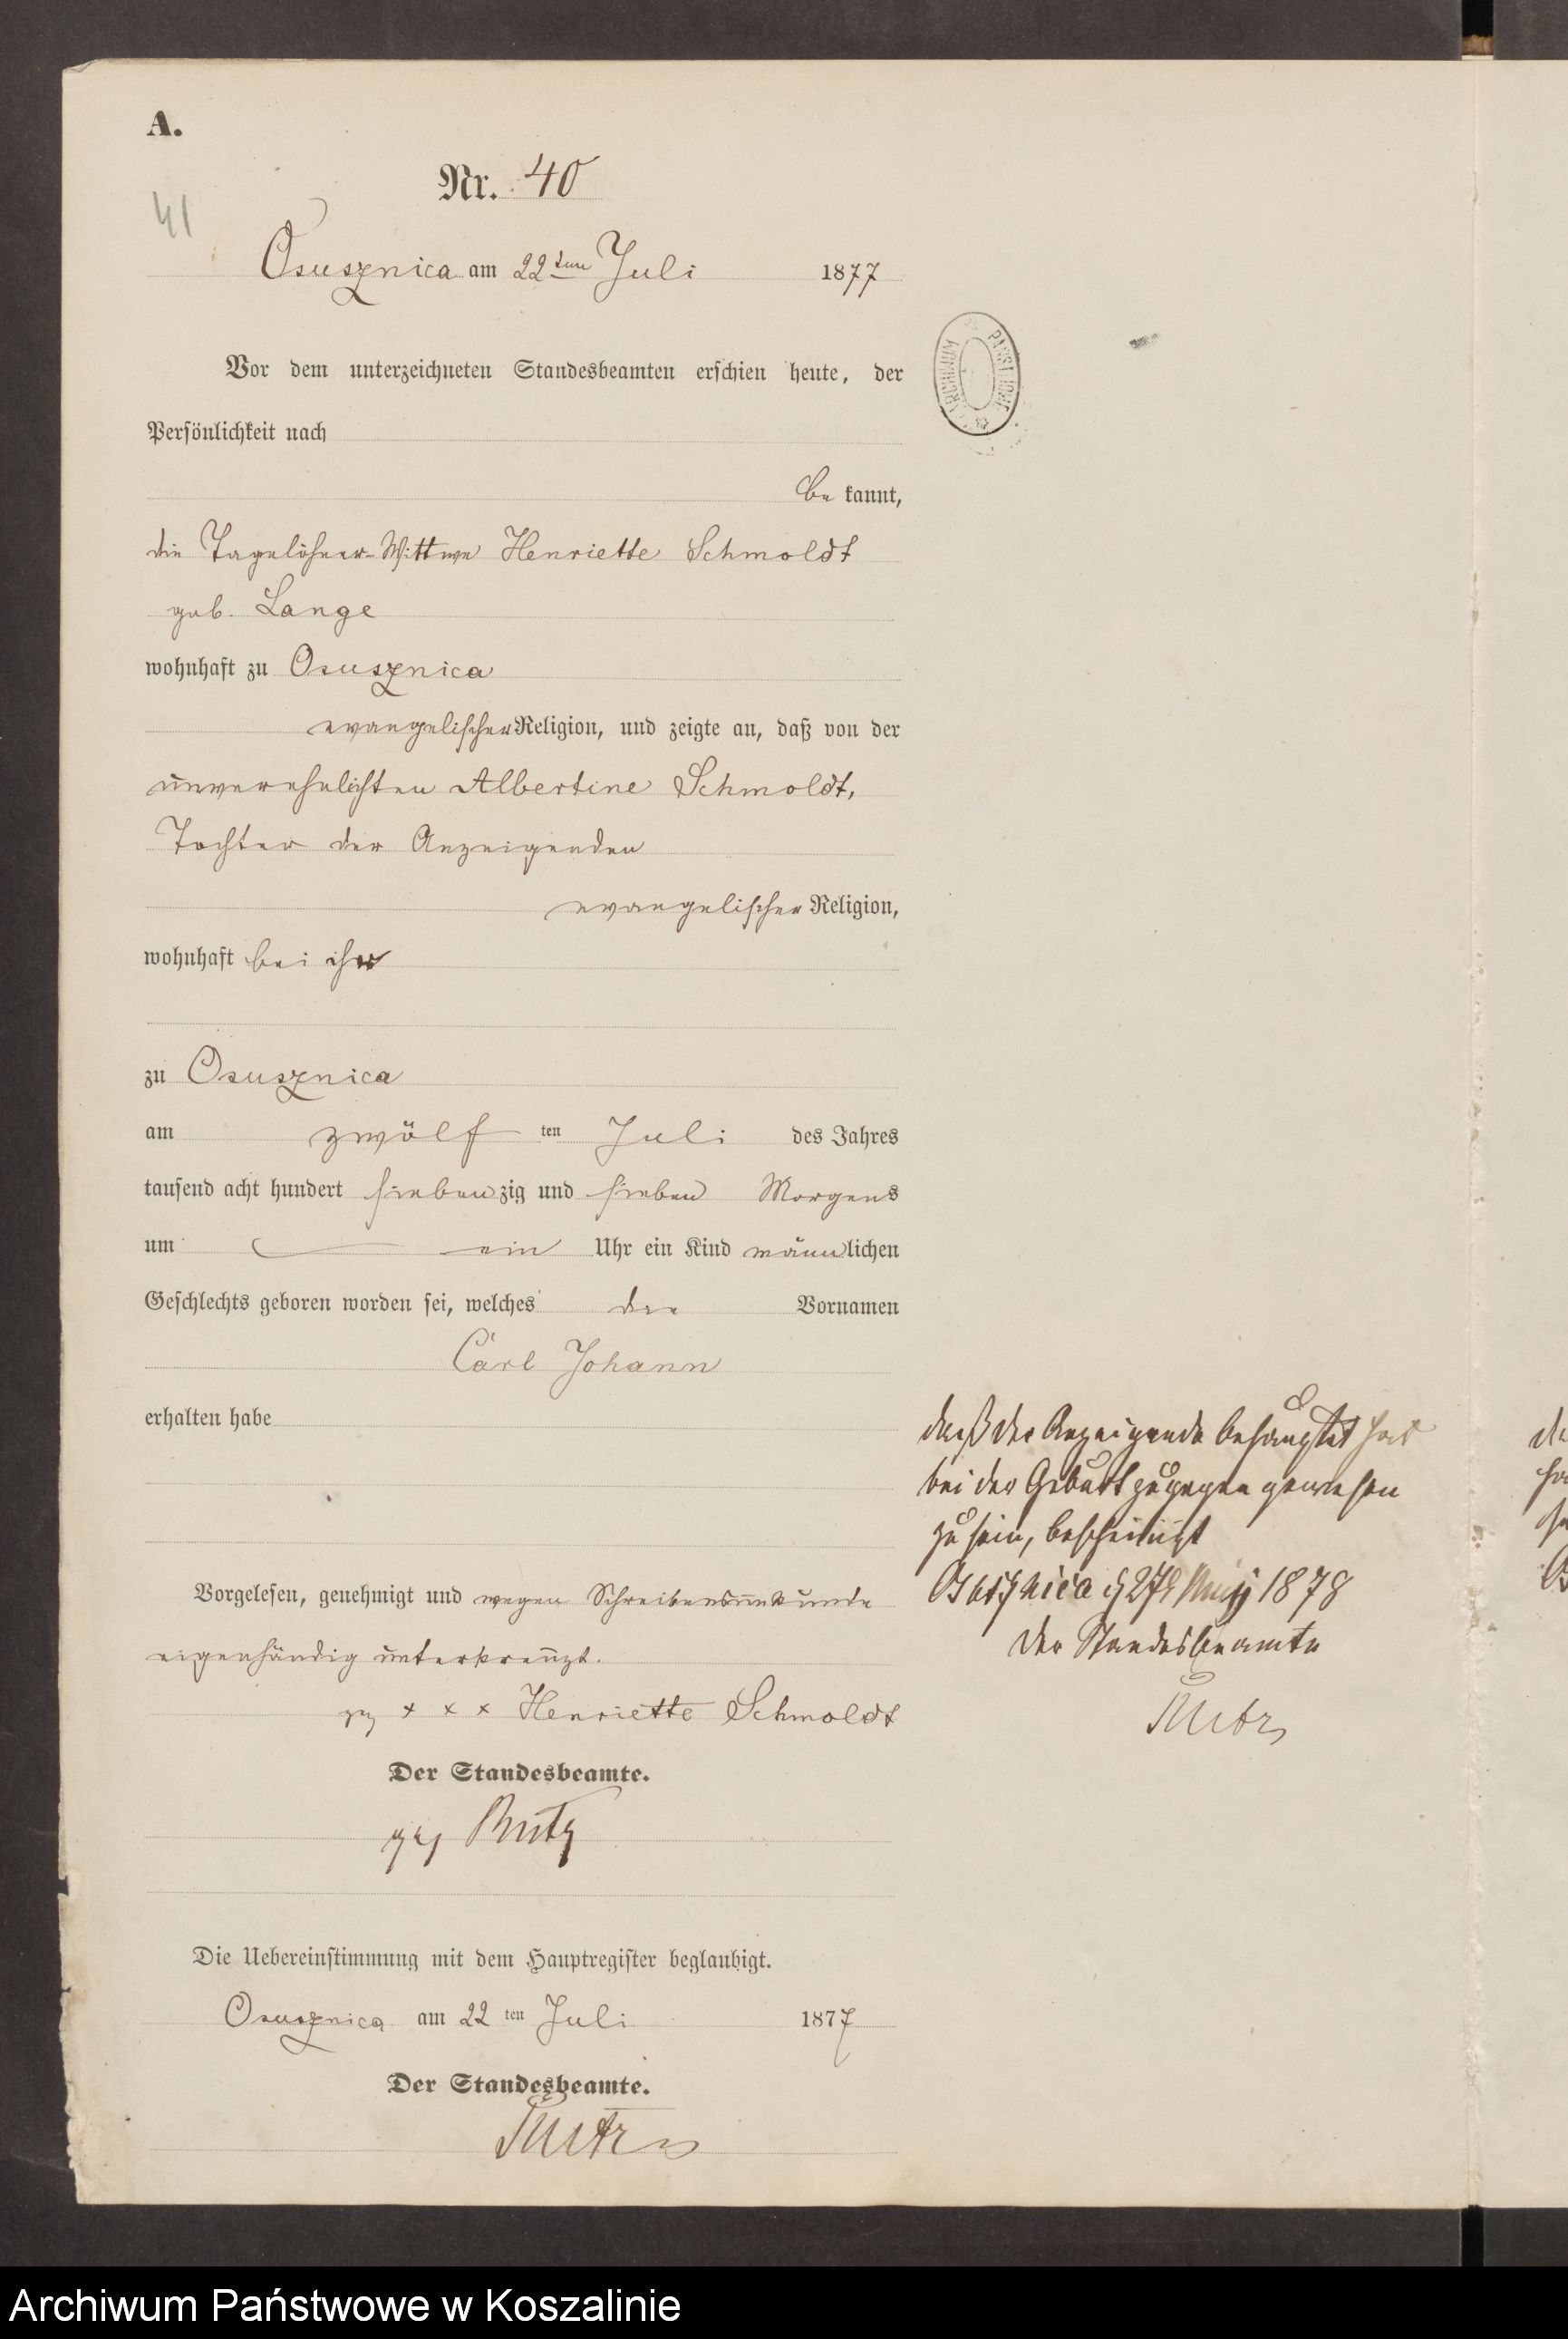 A.
Nr. 40
41
Osusznica am 22ten Juli 1877
Vor dem unterzeichneten Standesbeamten erschien heute, der
Persönlichkeit nach
be kannt,
die Tagelöhner-Wittwe Henriette Schmoldt
geb. Lange
wohnhaft zu Osusznica
evangelischer Religion, und zeigte an, daß von der
unverehelichten Albertine Schmoldt,
Tochter der Anzeigenden
evangelischer Religion,
wohnhaft bei ihr
zu Osusznica
am zwölf ten Juli des Jahres
tausend acht hundert siebenzig und sieben Morgens
um ein Uhr ein Kind männlichen
Geschlechts geboren worden sei, welches die Vornamen
Carl Johann
erhalten habe
Vorgelesen, genehmigt und wegen Schreibensunkunde
eigenhändig unterkreuzt.
gez + + + Henriette Schmoldt
Der Standesbeamte.
gez
Die Uebereinstimmung mit dem Hauptregister beglaubigt.
Osusznica am 22 ten Juli 1877
Der Standesbeamte.
daß die Anzeigende behauptet hat
bei der Geburt zugegen gewesen
zu sein, bescheinigt
Osusznica 27 1878
Der Standesbeamte
Archiwum Państwowe w Koszalinie